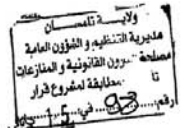 ولايــة تلمســان
مديرية التنظيم و الشؤون العامة
مصلحة الشؤون القانونية و المنازعات
مطابقة لمشروع قرار
رقم: 93 في: